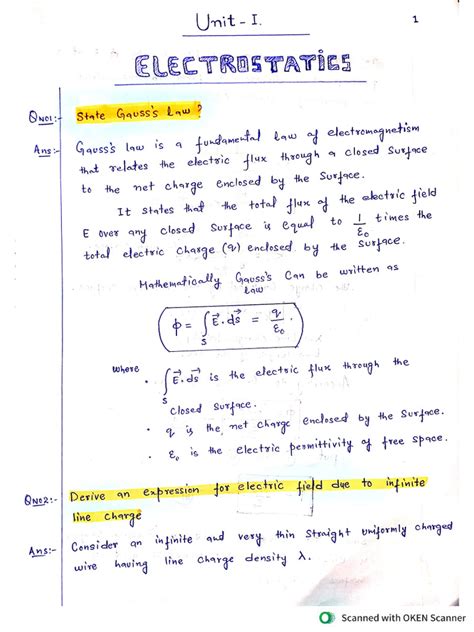 Unit - I.
1
ELECTROSTATICS
QNO1:- State Gauss's Law?
Ans:- Gauss's law is a fundamental law of electromagnetism
that relates the electric flux through a closed surface
to the net charge enclosed by the surface.
It states that the total flux of the electric field
E over any closed surface is equal to 1/ε₀ times the
total electric charge (q) enclosed by the surface.
Mathematically Gauss's law can be written as
ϕ = ∫_S E⃗. ds⃗ = q/ε₀.
where
• ∫_S E⃗. ds⃗ is the electric flux through the
closed surface.
• q is the net charge enclosed by the surface.
• ε₀ is the electric permittivity of free space.
QNO2:- Derive an expression for electric field due to infinite
line charge
Ans:- Consider an infinite and very thin straight uniformly charged
wire having line charge density λ.
Scanned with OKEN Scanner